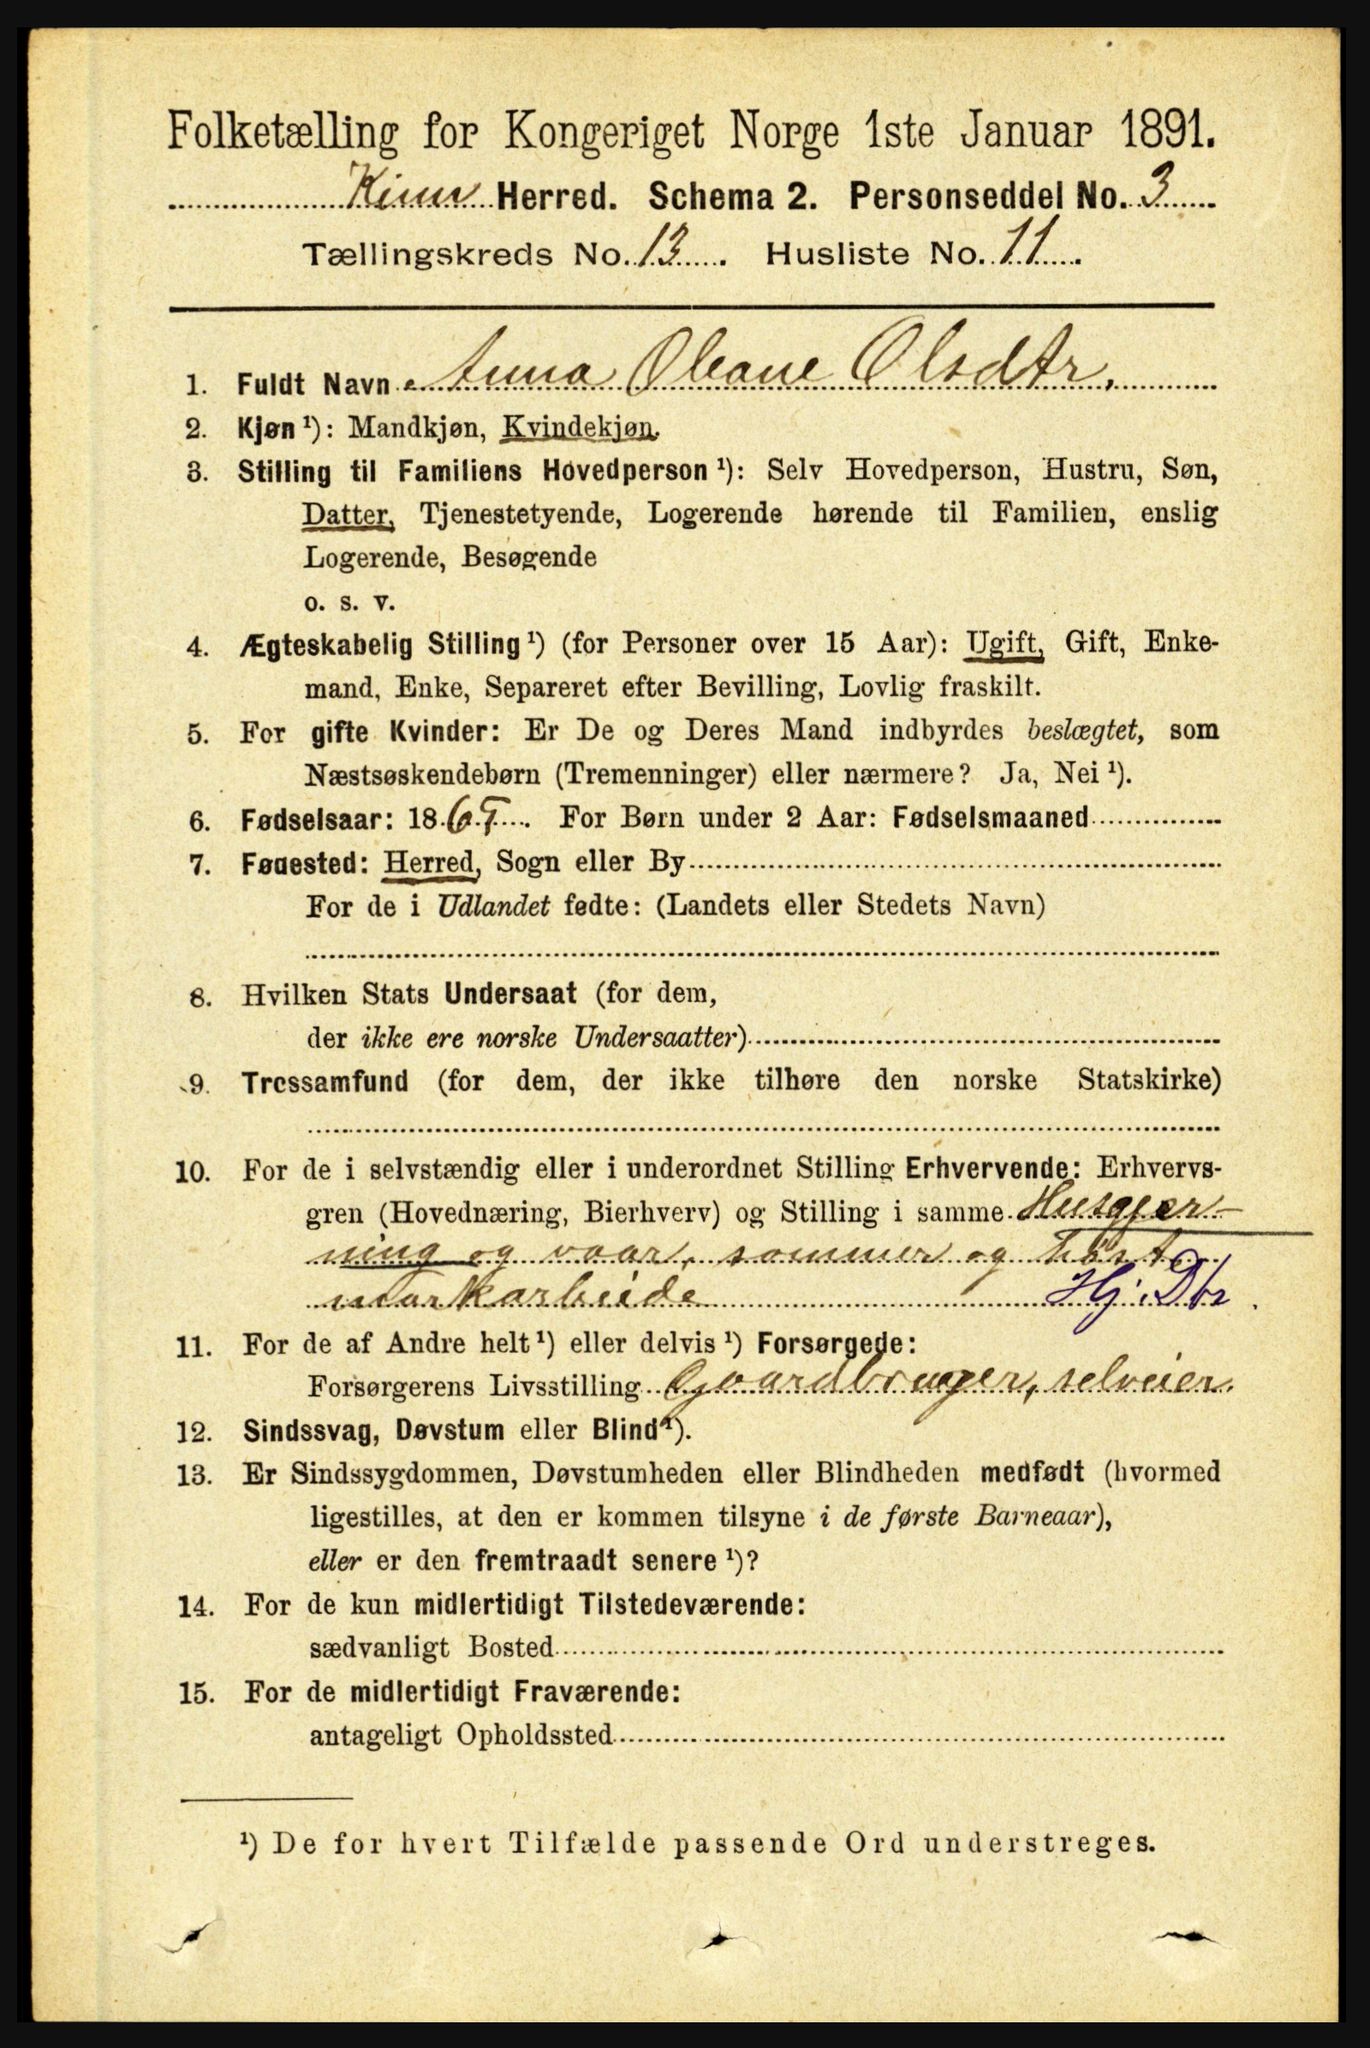 Folketælling for Kongeriget Norge 1ste Januar 1891.
Kinn Herred. Schema 2. Personseddel No. 3
Tællingskreds No. 13. Husliste No. 11.
1. Fuldt Navn Anna Oleane Olsdtr.
2. Kjøn ¹): Mandkjøn, Kvindekjøn.
3. Stilling til Familiens Hovedperson ¹): Selv Hovedperson, Hustru, Søn,
Datter, Tjenestetyende, Logerende hørende til Familien, enslig
Logerende, Besøgende
o. s. v.
4. Ægteskabelig Stilling ¹) (for Personer over 15 Aar): Ugift, Gift, Enke-
mand, Enke, Separeret efter Bevilling, Lovlig fraskilt.
5. For gifte Kvinder: Er De og Deres Mand indbyrdes beslægtet, som
Næstsøskendebørn (Tremenninger) eller nærmere? Ja, Nei ¹).
6. Fødselsaar: 1865. For Børn under 2 Aar: Fødselsmaaned
7. Fødested: Herred, Sogn eller By
For de i Udlandet fødte: (Landets eller Stedets Navn)
8. Hvilken Stats Undersaat (for dem,
der ikke ere norske Undersaatter)
9. Trossamfund (for dem, der ikke tilhøre den norske Statskirke)
10. For de i selvstændig eller i underordnet Stilling Erhvervende: Erhvervs-
gren (Hovednæring, Bierhverv) og Stilling i samme Husgjer-
ning og vaar, sommer og høst
markarbeide Hj. Dtr.
11. For de af Andre helt ¹) eller delvis ¹) Forsørgede:
Forsørgerens Livsstilling Gaardbruger, selveier.
12. Sindssvag, Døvstum eller Blind ¹).
13. Er Sindssygdommen, Døvstumheden eller Blindheden medfødt (hvormed
ligestilles, at den er kommen tilsyne i de første Barneaar),
eller er den fremtraadt senere ¹)?
14. For de kun midlertidigt Tilstedeværende:
sædvanligt Bosted
15. For de midlertidigt Fraværende:
antageligt Opholdssted
¹) De for hvert Tilfælde passende Ord understreges.